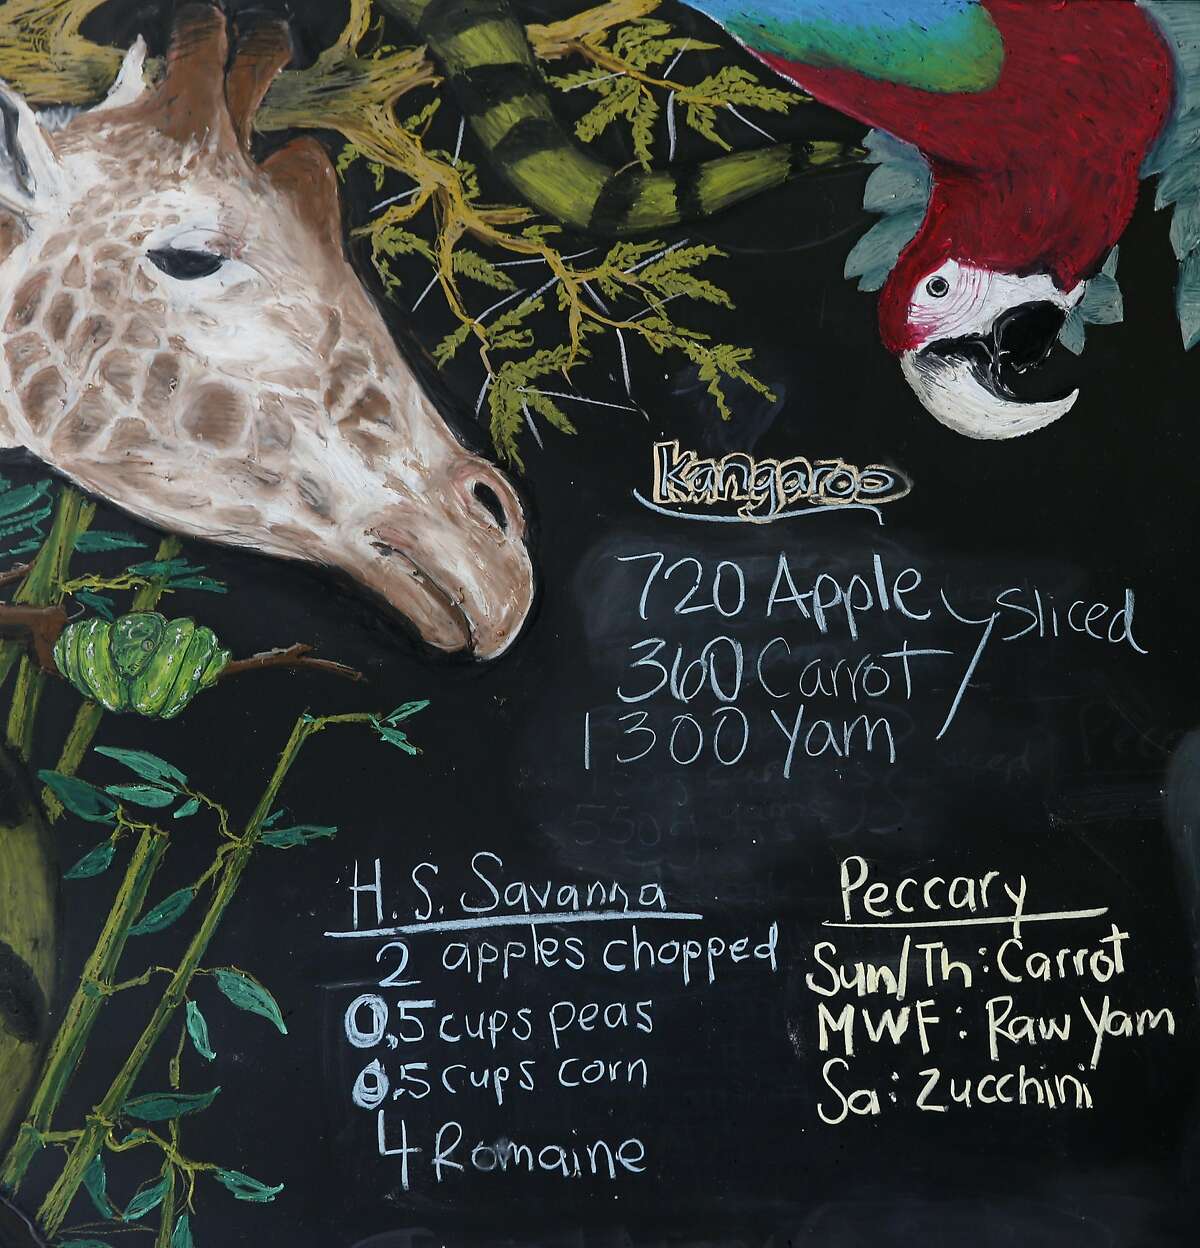 Kangaroo
720 Apple
360 Carrot
1300 Yam
Sliced
H. S. Savanna
2 apples chopped
0.5 cups peas
0.5 cups corn
4 Romaine
Peccary
Sun/Th: Carrot
MWF: Raw Yam
Sa: Zucchini